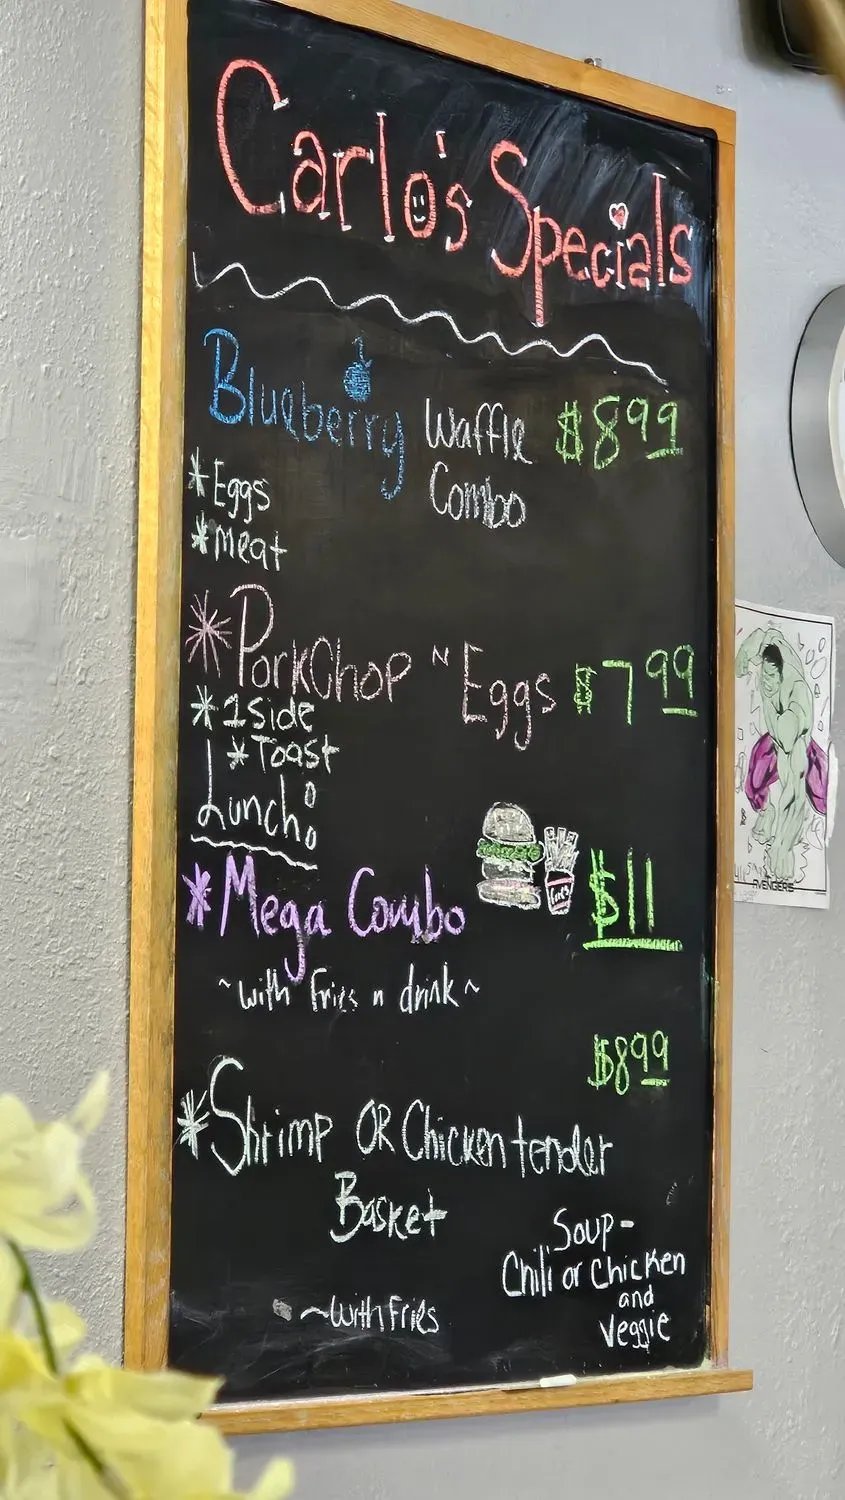 Carlo's Specials
Blueberry Waffle $8.99
Combo
*Eggs
*Meat
*PorkChop "N Eggs $7.99
*1side
*Toast
Lunch:
*Mega Combo $11
~with Fries n drink~
$8.99
*Shrimp OR Chicken tender
Basket
~with Fries
Soup-
Chili or Chicken
and
Veggie
AVENGERS